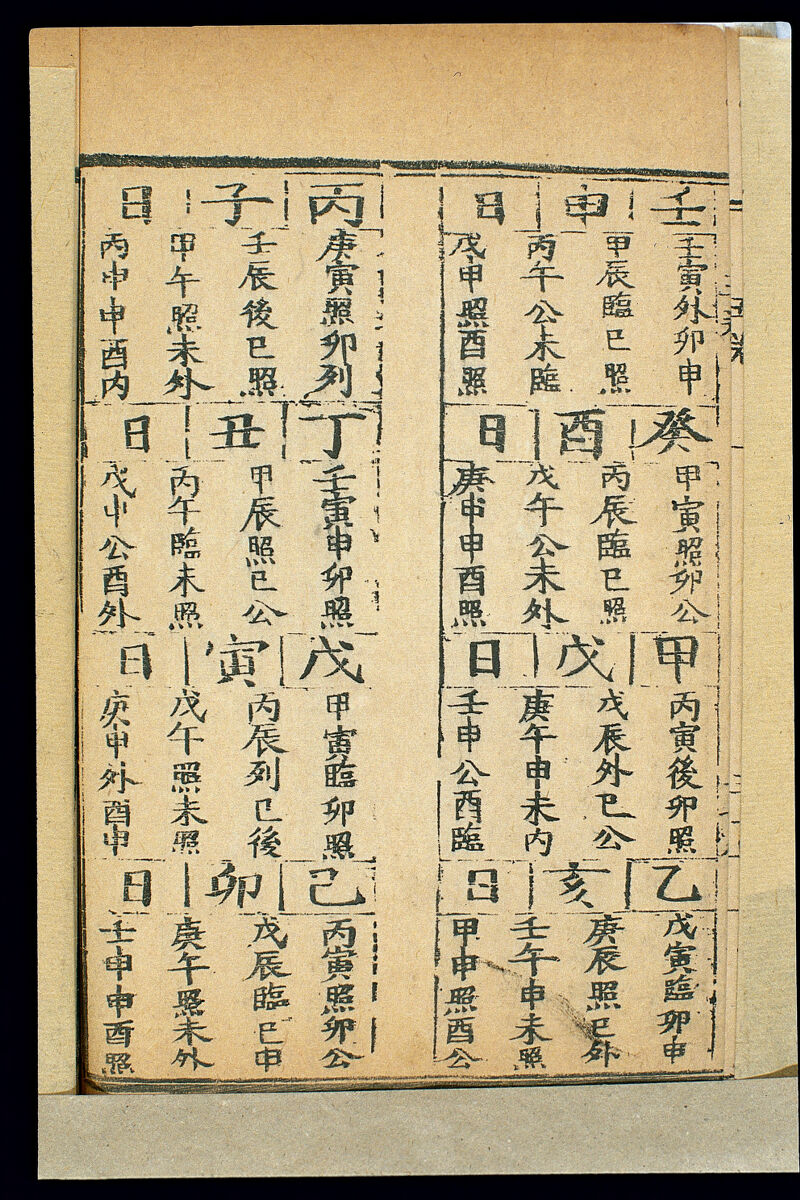 壬申日
壬寅外卯申
甲辰臨巳照
丙午公未臨
戊申照酉照
癸酉日
甲寅照卯公
丙辰臨巳照
戊午公未外
庚申申酉照
甲戌日
丙寅後卯照
戊辰外巳公
庚午申未内
壬申公酉臨
乙亥日
戊寅臨卯申
庚辰照巳外
壬午申未照
甲申照酉公
丙子日
庚寅照卯列
壬辰後巳照
甲午照未外
丙申申酉内
丁丑日
壬寅申卯照
甲辰照巳公
丙午臨未照
戊申公酉外
戊寅日
甲寅臨卯照
丙辰列巳後
戊午照未照
庚申外酉申
己卯日
丙寅照卯公
戊辰臨巳申
庚午照未外
壬申申酉照